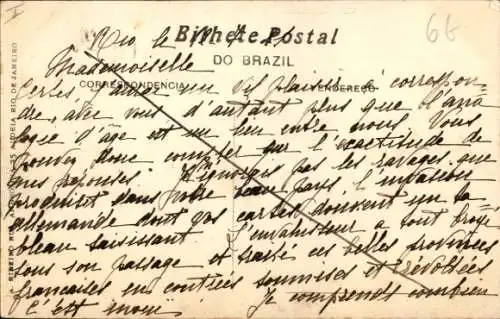 Rio le
Bilhete Postal
DO BRAZIL
66
Mademoiselle
CORRESPONDENCIA
ENDEREÇO
Certes un vif plaisir à correspon-
dre avec vous d'autant plus que l'ana-
logie d'âge est un lien entre nous. Vous
pouvez donc compter sur l'exactitude de
mes réponses. J'ignorais pas les ravages que
produisit dans votre beau pays, l'invasion
allemande dont vos cartes donnent un ta-
bleau saisissant. L'envahisseur a tout broyé
sous son passage et traité ces belles provinces
françaises en contrées soumises et révoltées
C'est inouï Je comprends combien
RIO DE JANEIRO